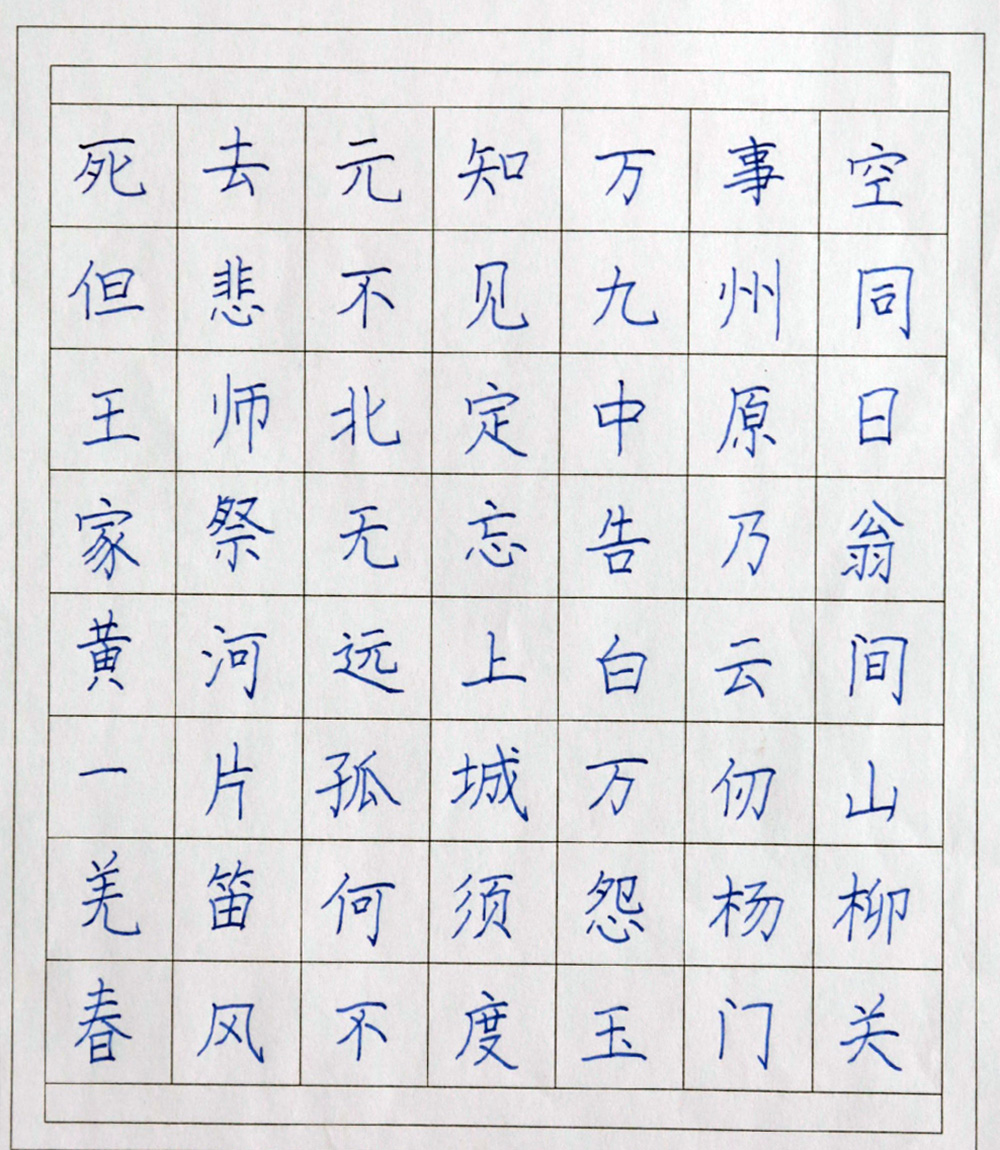 死去元知万事空
但悲不见九州同
王师北定中原日
家祭无忘告乃翁
黄河远上白云间
一片孤城万仞山
羌笛何须怨杨柳
春风不度玉门关